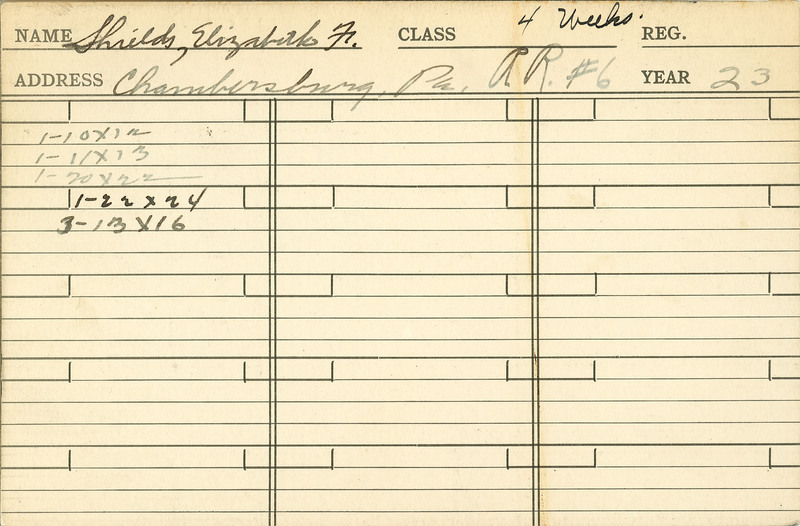 NAME Shields, Elizabeth F. CLASS 4 Weeks. REG.
ADDRESS Chambersburg, Pa, R.R. #6 YEAR 23
1-10X12
1-11X13
1-20X22
1-22 x 24
3-13X16